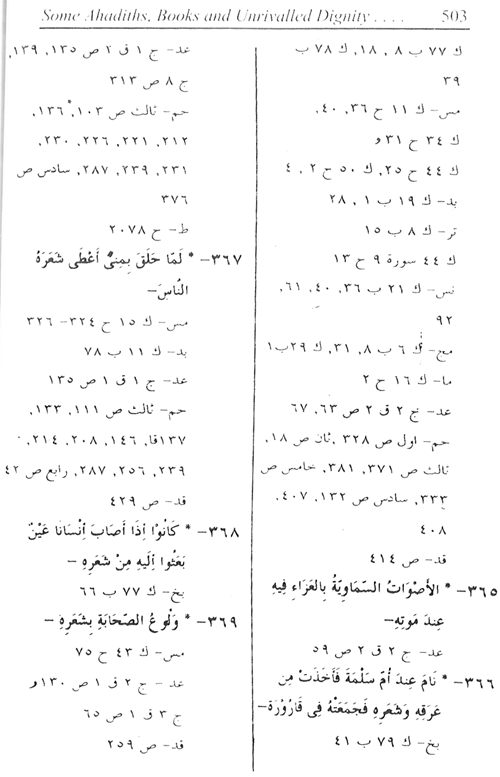 Some Ahadiths, Books and Unrivalled Dignity .... 503
ك ٧٧ ب ٨, ١٨, ك ٧٨ ب
٣٩
مس– ك ١١ ح ٣٦, ٤٠,
ك ٣٤ ح ٣١ و
ك ٤٤ ح ٢٥, ك ٥٠ ح ٢, ٤
بد– ك ١٩ ب ١, ٢٨
تر– ك ٨ ب ١٥
ك ٤٤ سورة ٩ ح ١٣
نس– ك ٢١ ب ٣٦, ٤٠, ٦١,
٩٢
مج– ك ٦ ب ٨, ٣١, ك ٢٩ب١
ما– ك ١٦ ح ٢
عد– ج ٢ ق ٢ ص ٦٣, ٦٧
حم– اول ص ٣٢٨ ,ثان ص ١٨,
ثالث ص ٣٧١, ٣٨١, خامس ص
٣٣٣, سادس ص ١٣٢, ٤٠٧,
٤٠٨
قد– ص ٤١٤
٣٦٥– * الأَصْوَاتُ السَّمَاوِيَّةُ بِالعَزَاءِ فِيهِ
عِندَ مَوتِهِ–
عد– ج ٢ ق ٢ ص ٥٩
٣٦٦– * نَامَ عِندَ أُمّ سَلْمَةَ فَأَخَذَتْ مِن
عَرَقِهِ وَشَعَرِهِ فَجَمَعَتْهُ فِى قَارُورَة–
بخ– ك ٧٩ ب ٤١
عد– ج ١ ق ٢ ص ١٣٥, ١٣٩,
ج ٨ ص ٣١٣
حم– ثالث ص ١٠٣, ١٣٦,
٢١٢, ٢٢١, ٢٢٦, ٢٣٠,
٢٣١, ٢٣٩, ٢٨٧, سادس ص
٣٧٦
ط– ح ٢٠٧٨
٣٦٧– * لَمّا حَلَقَ بِمِنىً أَعْطَى شَعَرَهُ
النَّاسَ–
مس– ك ١٥ ح ٣٢٤– ٣٢٦
بد– ك ١١ ب ٧٨
عد– ج ١ ق ١ ص ١٣٥
حم– ثالث ص ١١١, ١٣٣,
١٣٧فا, ١٤٦, ٢٠٨, ٢١٤,
٢٣٩, ٢٥٦, ٢٨٧, رابع ص ٤٢
قد– ص ٤٢٩
٣٦٨– * كَانُوْا إِذَا أَصَابَ اِنْسَانَا عَيْنٌ
بَعَثُوا اِلَيهِ مِنْ شَعَرِهِ –
بخ– ك ٧٧ ب ٦٦
٣٦٩– * وَلُوعُ الصّحَابَةِ بِشَعَرِهِ –
مس– ك ٤٣ ح ٧٥
عد – ج ٢ ق ١ ص ١٣٠ و
ج ٣ ق ١ ص ٦٥
قد– ص ٢٥٩